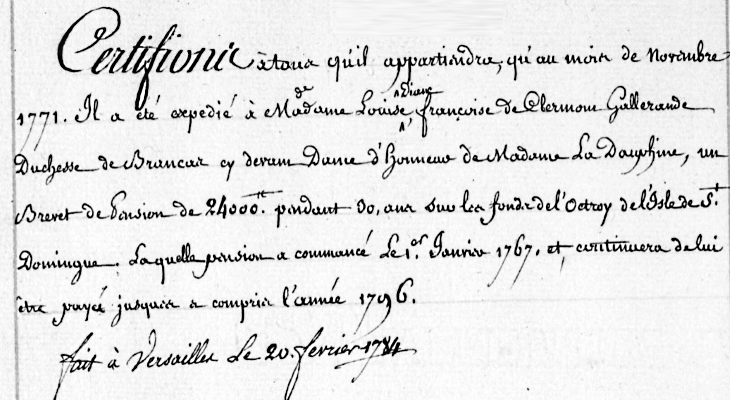 Certifions à tous qu'il appartiendra, qu'au mois de Novembre
1771. Il a été expedié à Madame de Louise Diane françoise de Clermont Gallerande
Duchesse de Brancas cy devant Dame d'Honneur de Madame La Dauphine, un
Brevet de Pension de 24000.tt pendant 30, ans sur les fonds de l'Octroy de l'Isle de St.
Domingue. Laquelle pension a commancé Le 1.er Janvier 1767. et continuera de lui
être payée jusques a compris l'année 1796.
fait à Versailles Le 20. fevrier 1784